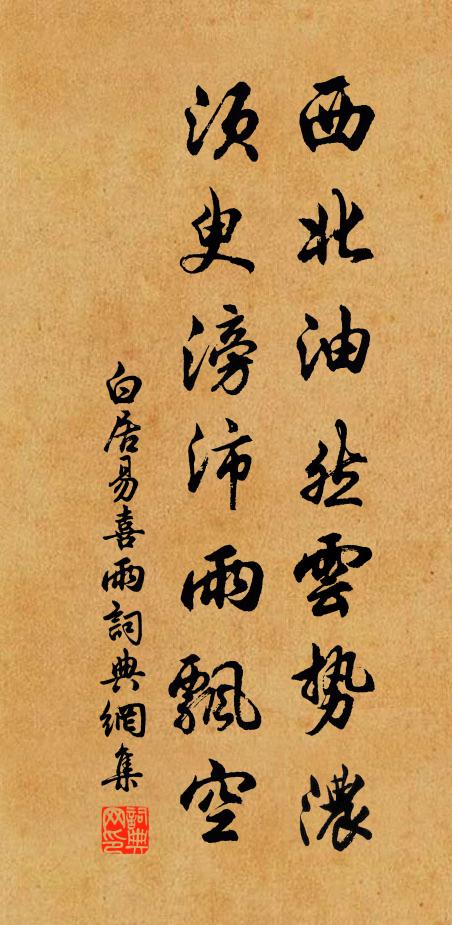 西北油然雲势濃
須臾滂沛雨飄空
白居易喜雨詞典網集
詞典网印